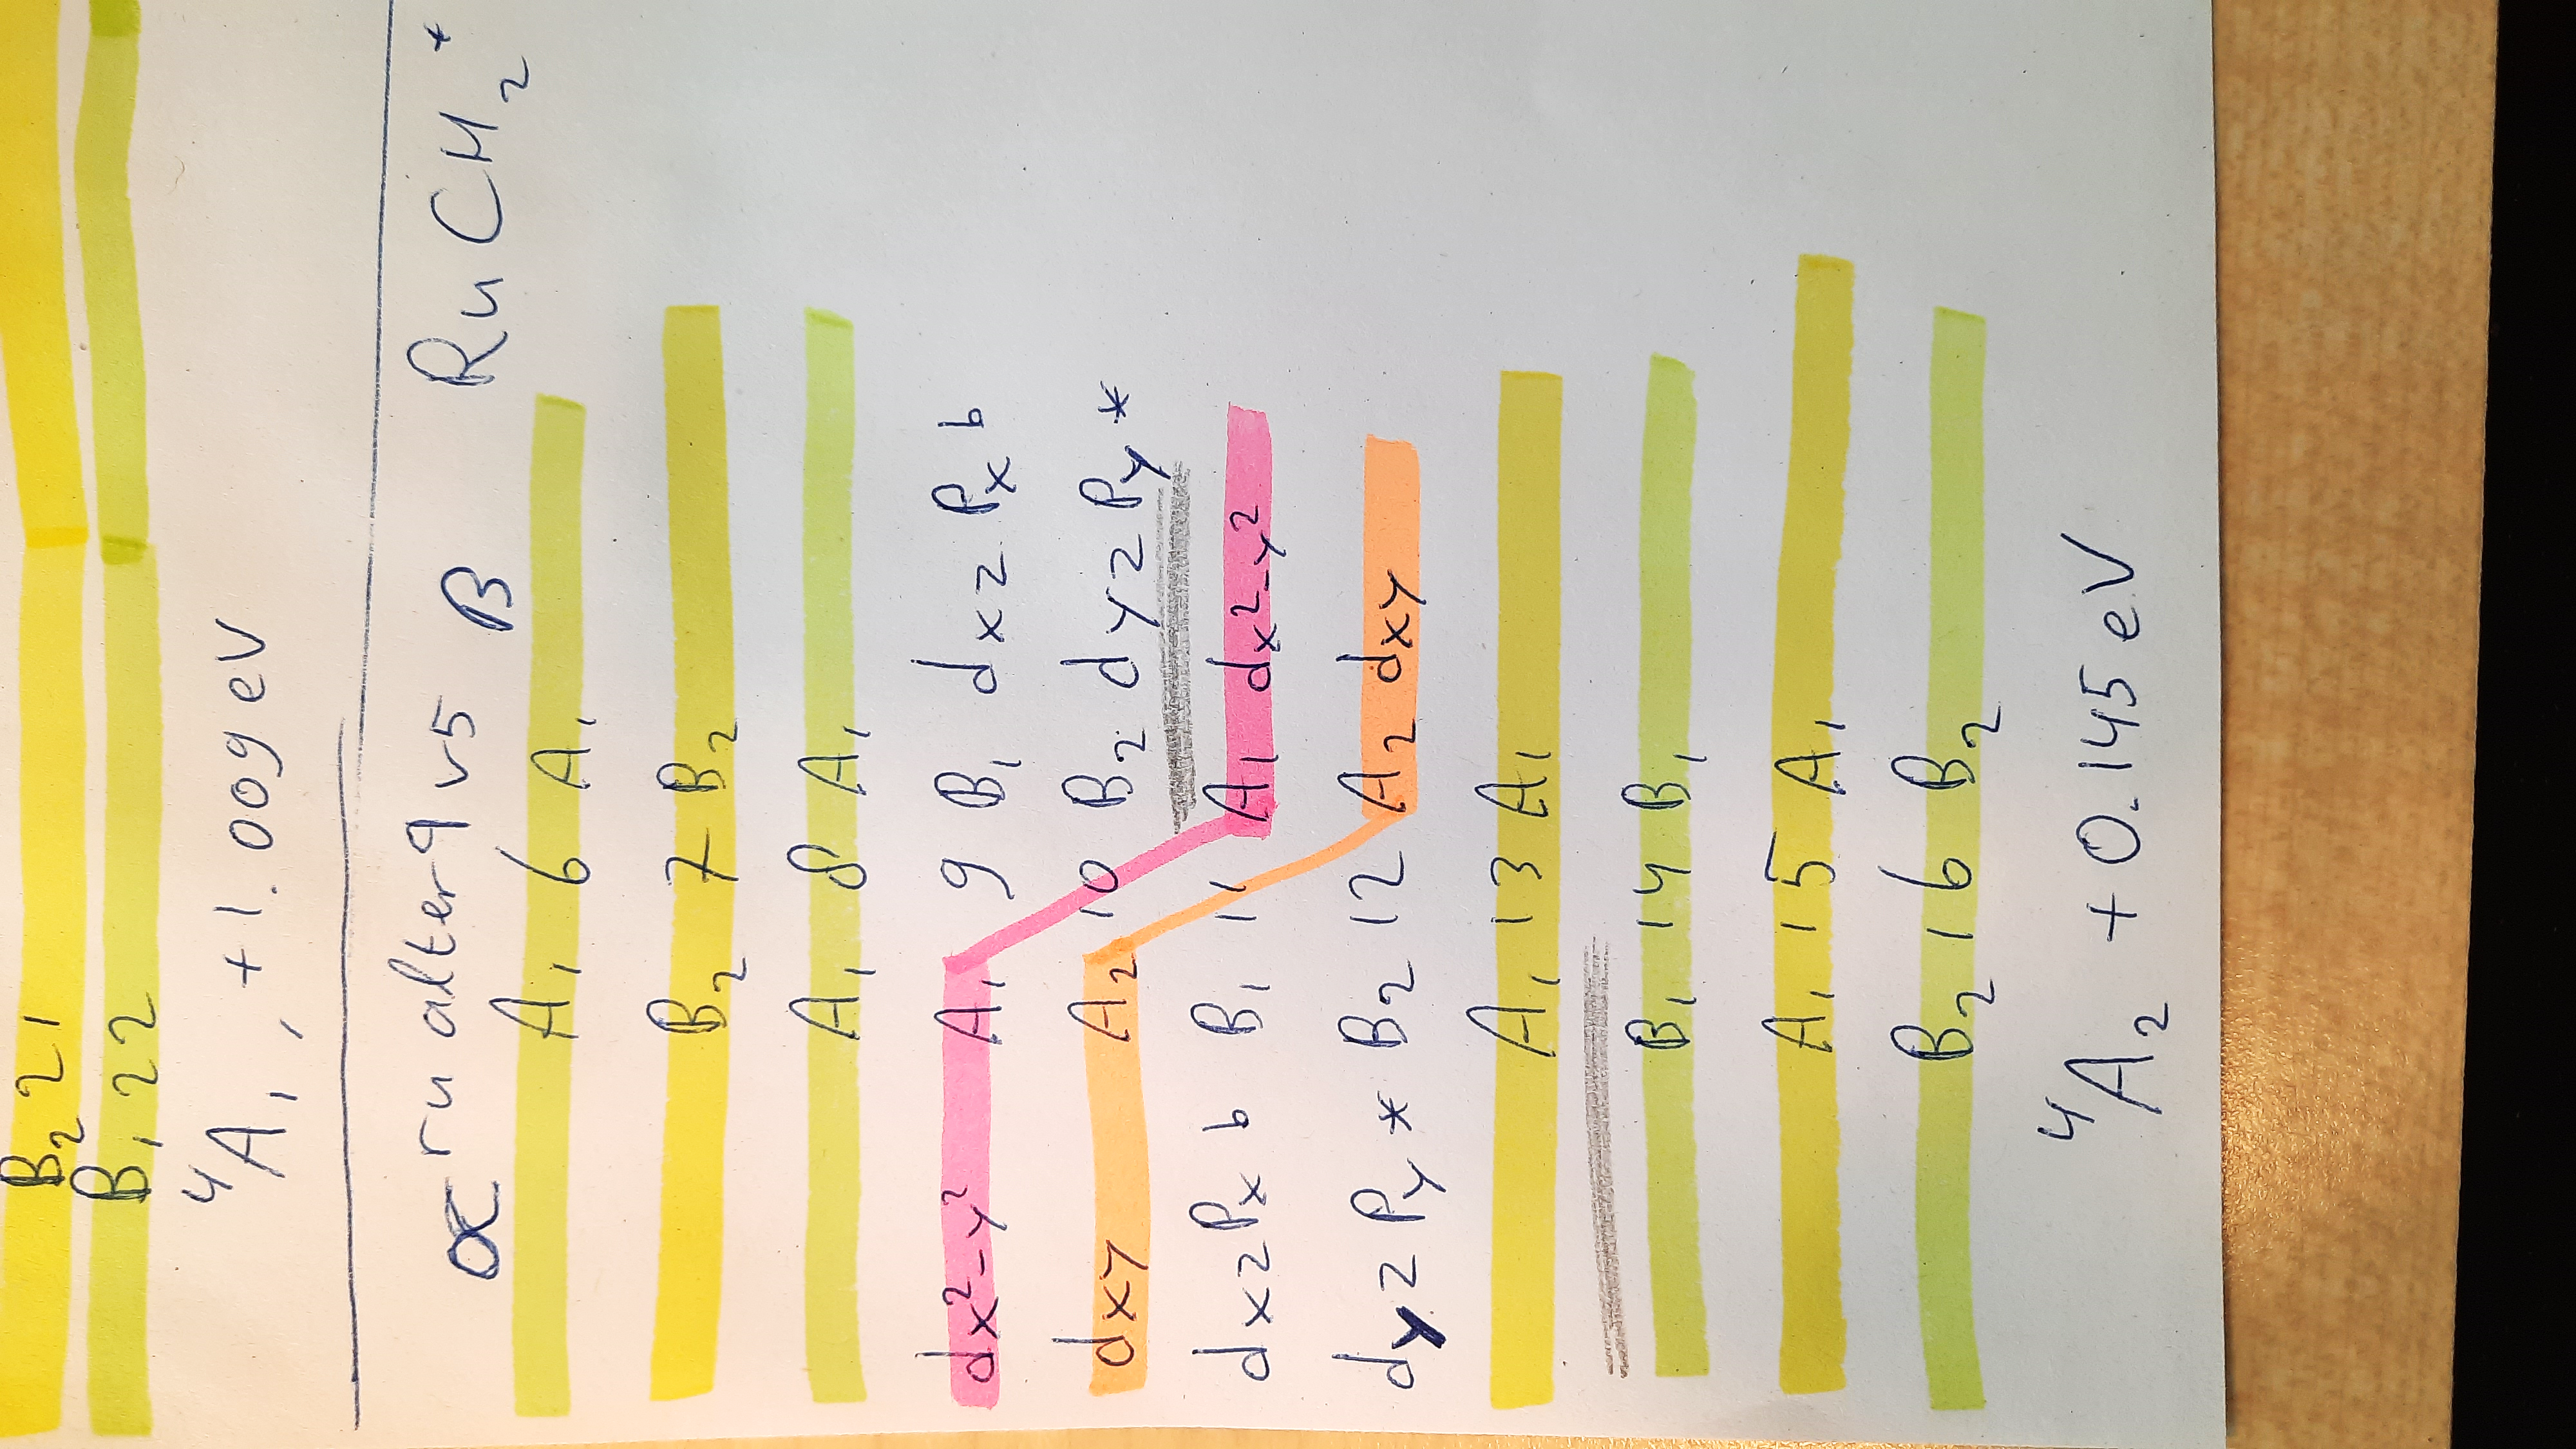 B₂ 21
B₁ 22
⁴A₁, +1.009 eV
α ru alter9 v5 β RuCH₂⁺
A₁ 6 A₁
B₂ 7 B₂
A₁ 8 A₁
dx²-y² A₁ 9 B₁ dxz Px b
dxy A₂ 10 B₂ dyz Py *
dxz Px b B₁ 11 A₁ dx²-y²
dyz Py * B₂ 12 A₂ dxy
A₁ 13 A₁
B₁ 14 B₁
A₁ 15 A₁
B₂ 16 B₂
⁴A₂ +0.145 eV